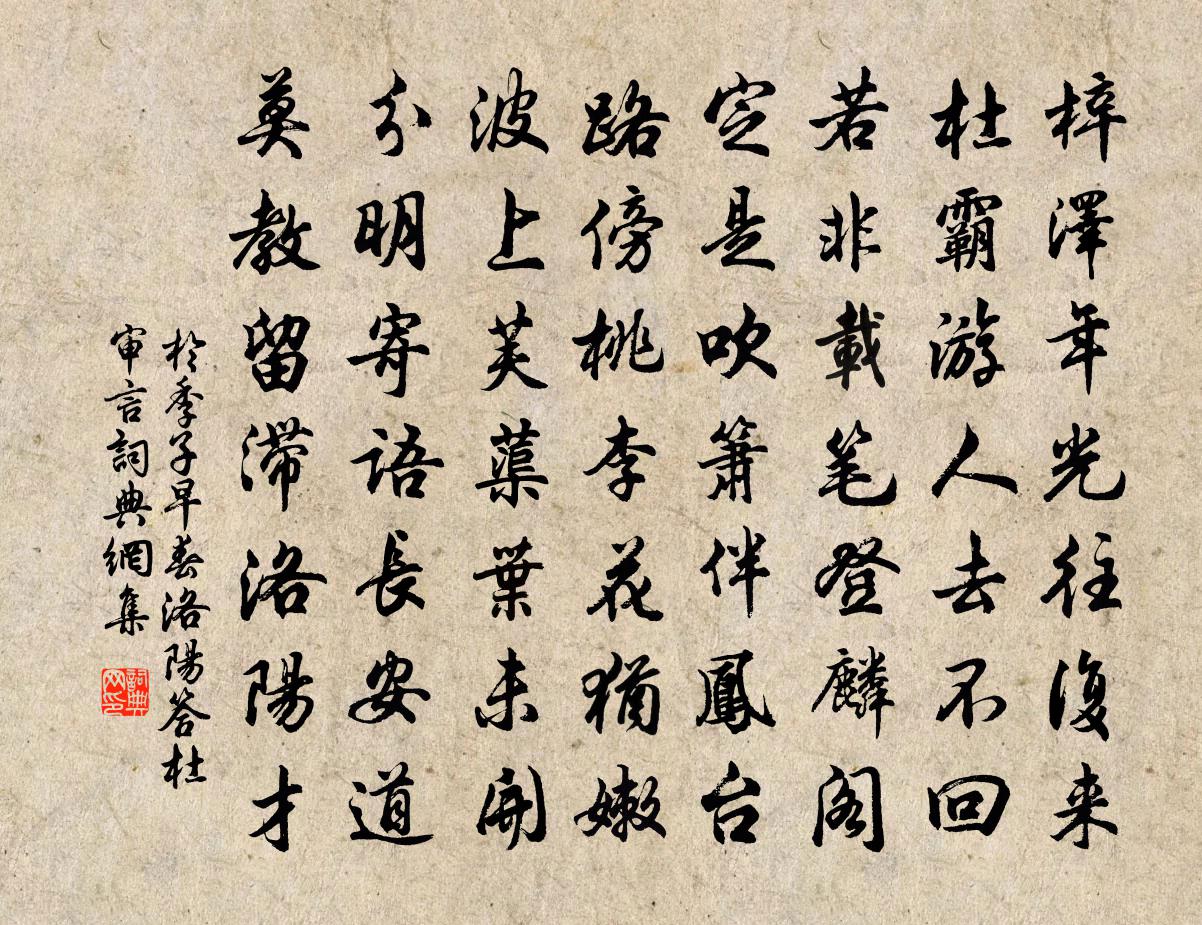 梓澤年光往復来
杜霸游人去不回
若非載笔登麟阁
定是吹箫伴鳳台
路傍桃李花猶嫩
波上芙蕖葉未開
分明寄語長安道
莫教留滞洛陽才
於季子早春洛陽答杜
审言詞典網集
詞典
网印